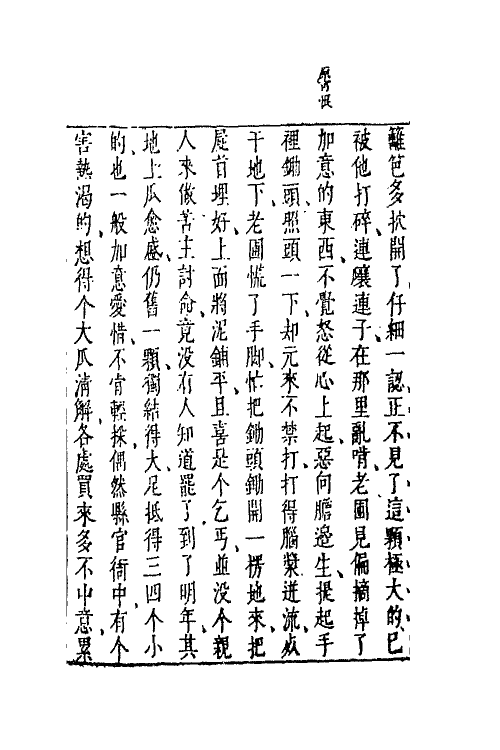 恨
籬笆多扒開了仔細一認正不見了這顆極大的已
被他打碎連瓤連子在那里亂啃老圃見偏摘掉了
加意的東西不覺怒從心上起惡向膽邊生提起手
裡鋤頭照頭一下却元來不禁打打得腦漿迸流死
于地下老圃慌了手脚忙把鋤頭鋤開一楞地來把
屍首埋好上面將泥鋪平且喜是个乞丐並没个親
人來做苦主討命竟没有人知道罷了到了明年其
地上瓜愈盛仍舊一顆獨結得大足抵得三四个小
的也一般加意愛惜不肯輕採偶然縣官衙中有个
害熱渴的想得个大瓜清解各處買來多不中意累